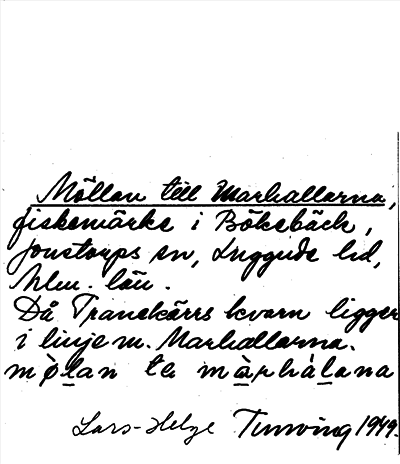 Möllan till Marhallarna,
fiskemärke i Bökebäck,
Jonstorps sn, Luggude hd,
Mlm. län.
Då Tranekärrs kvarn ligger
i linje m. Marhallarna.
mø̀lan te màrhàlana
Lars-Helge Tunving 1949.